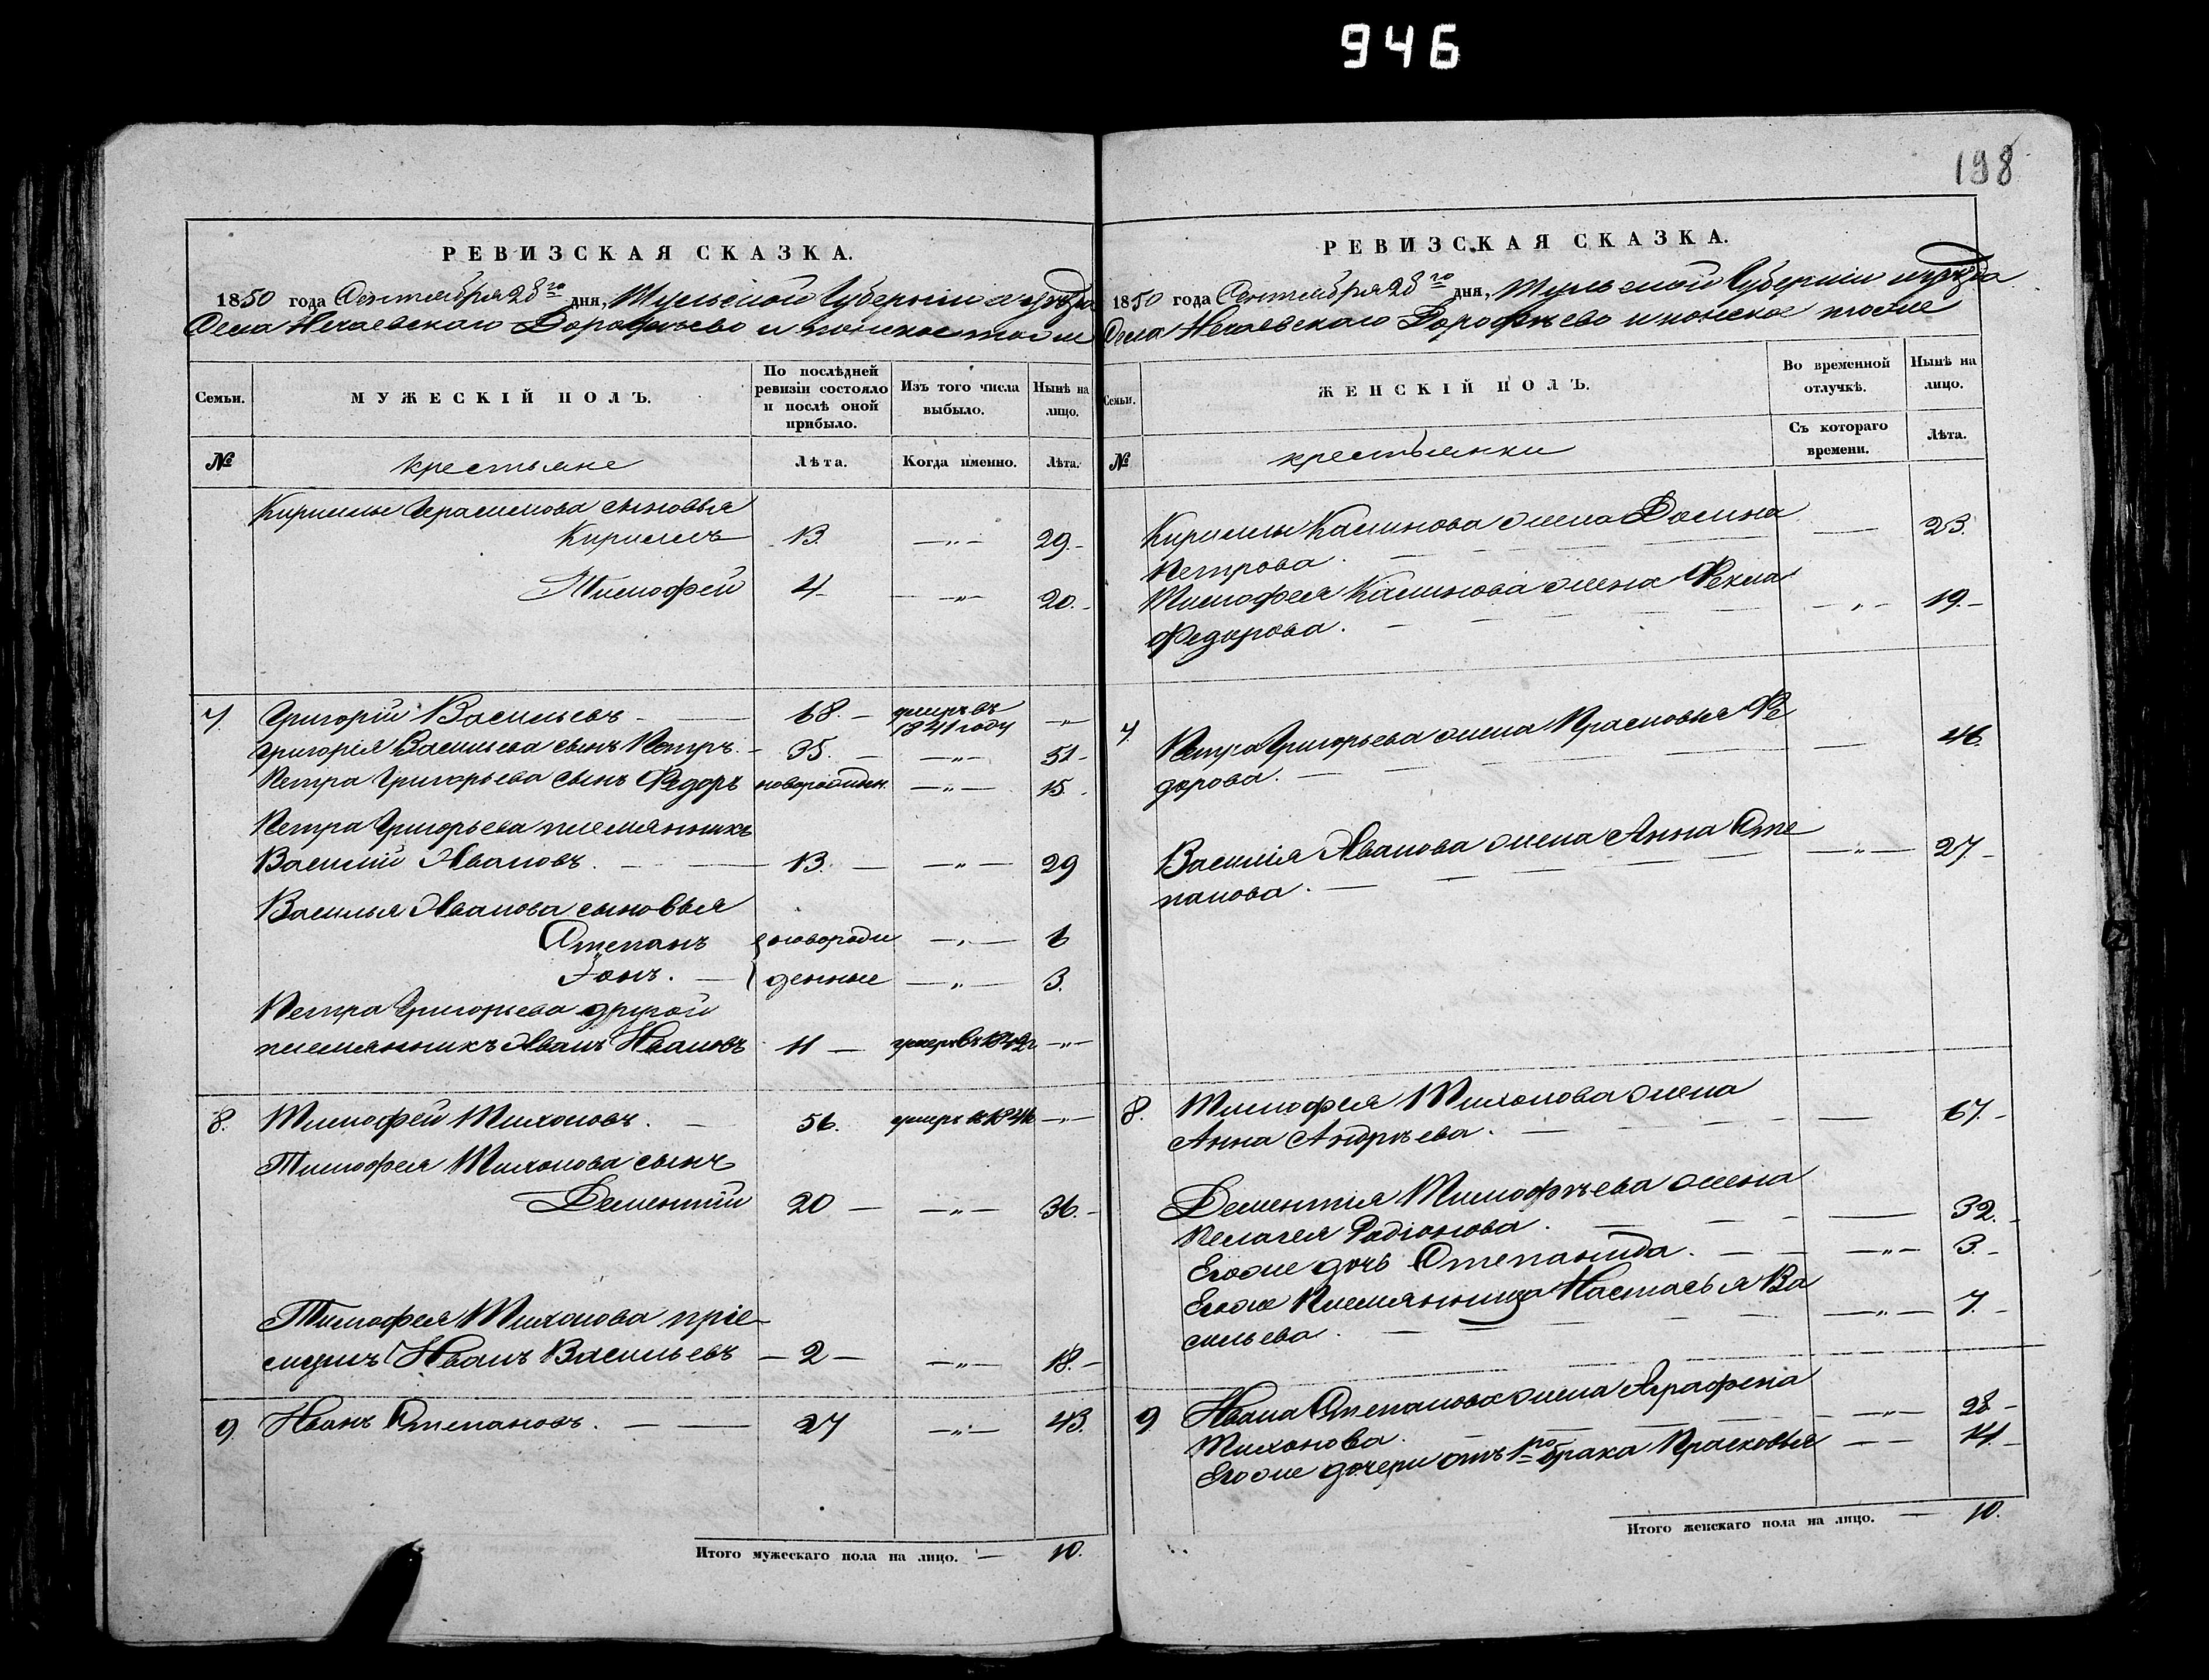 946
198
РЕВИЗСКАЯ СКАЗКА.
1850 года Сентября 28го дня, Тульской Губерніи и уѣзда
Села Нечаевскаго Дорофѣево тоже
Семьи.
МУЖЕСКІЙ ПОЛЪ.
По послѣдней ревизіи состояло и послѣ оной прибыло.
Изъ того числа выбыло.
Нынѣ на лицо.
№
крестьяне
Лѣта.
Когда именно.
Лѣта.
сыновья
Кирилъ 13. —„— 29.
Тимофей 4 —„— 20.
7. Григорій Васильевъ 68. умеръ въ 1841 году —„—
Григорія Васильева сынъ Петръ 35. —„— 51
Петра Григорьева сынъ Федоръ новорожден. —„— 15.
Петра Григорьева племянникъ
Василій Ивановъ. 13. —„— 29
Василья Иванова сыновья
Степанъ новорож —„— 6
Іонъ. денные —„— 3.
Петра Григорьева другой
племянникъ Иванъ Ивановъ 11 умеръ въ —„—
8. Тимофей Тихоновъ. 56. умеръ въ —„—
Тимофея Тихонова сынъ
Дементій 20 —„— 36.
Тимофея Тихонова пріе-
мышъ Иванъ Васильевъ — 2 — —„— 18.
9. Иванъ Степановъ. 27 —„— 43.
Итого мужескаго пола на лицо. — 10.
РЕВИЗСКАЯ СКАЗКА.
1850 года Сентября 28го дня, Тульской Губерніи и уѣзда
Села Нечаевскаго Дорофѣево тоже
Семьи.
ЖЕНСКІЙ ПОЛЪ.
Во временной отлучкѣ.
Нынѣ на лицо.
№
крестьянки
Съ котораго времени.
Лѣта.
Кирилы Калинова жена Домна — 23.
Петрова.
Тимофея Калинова жена Фекла —„— 19.
Федорова.
7. Петра Григорьева жена Прасковья Фе — 46.
дорова.
Василія Иванова жена Анна Сте —„— 27.
панова.
8. Тимофея Тихонова жена — 67.
Анна Андрѣева.
Дементія Тимофѣева жена
Пелагея Радіонова. — 32.
Егоже дочь Степанида. —„— 3.
Егоже племянница Настасья Ва —„— 7.
сильева.
9 Ивана Степанова жена Аграфена —„— 28
Тихонова.
Егоже дочери отъ 1го брака Прасковья — 14.
Итого женскаго пола на лицо. — 10.